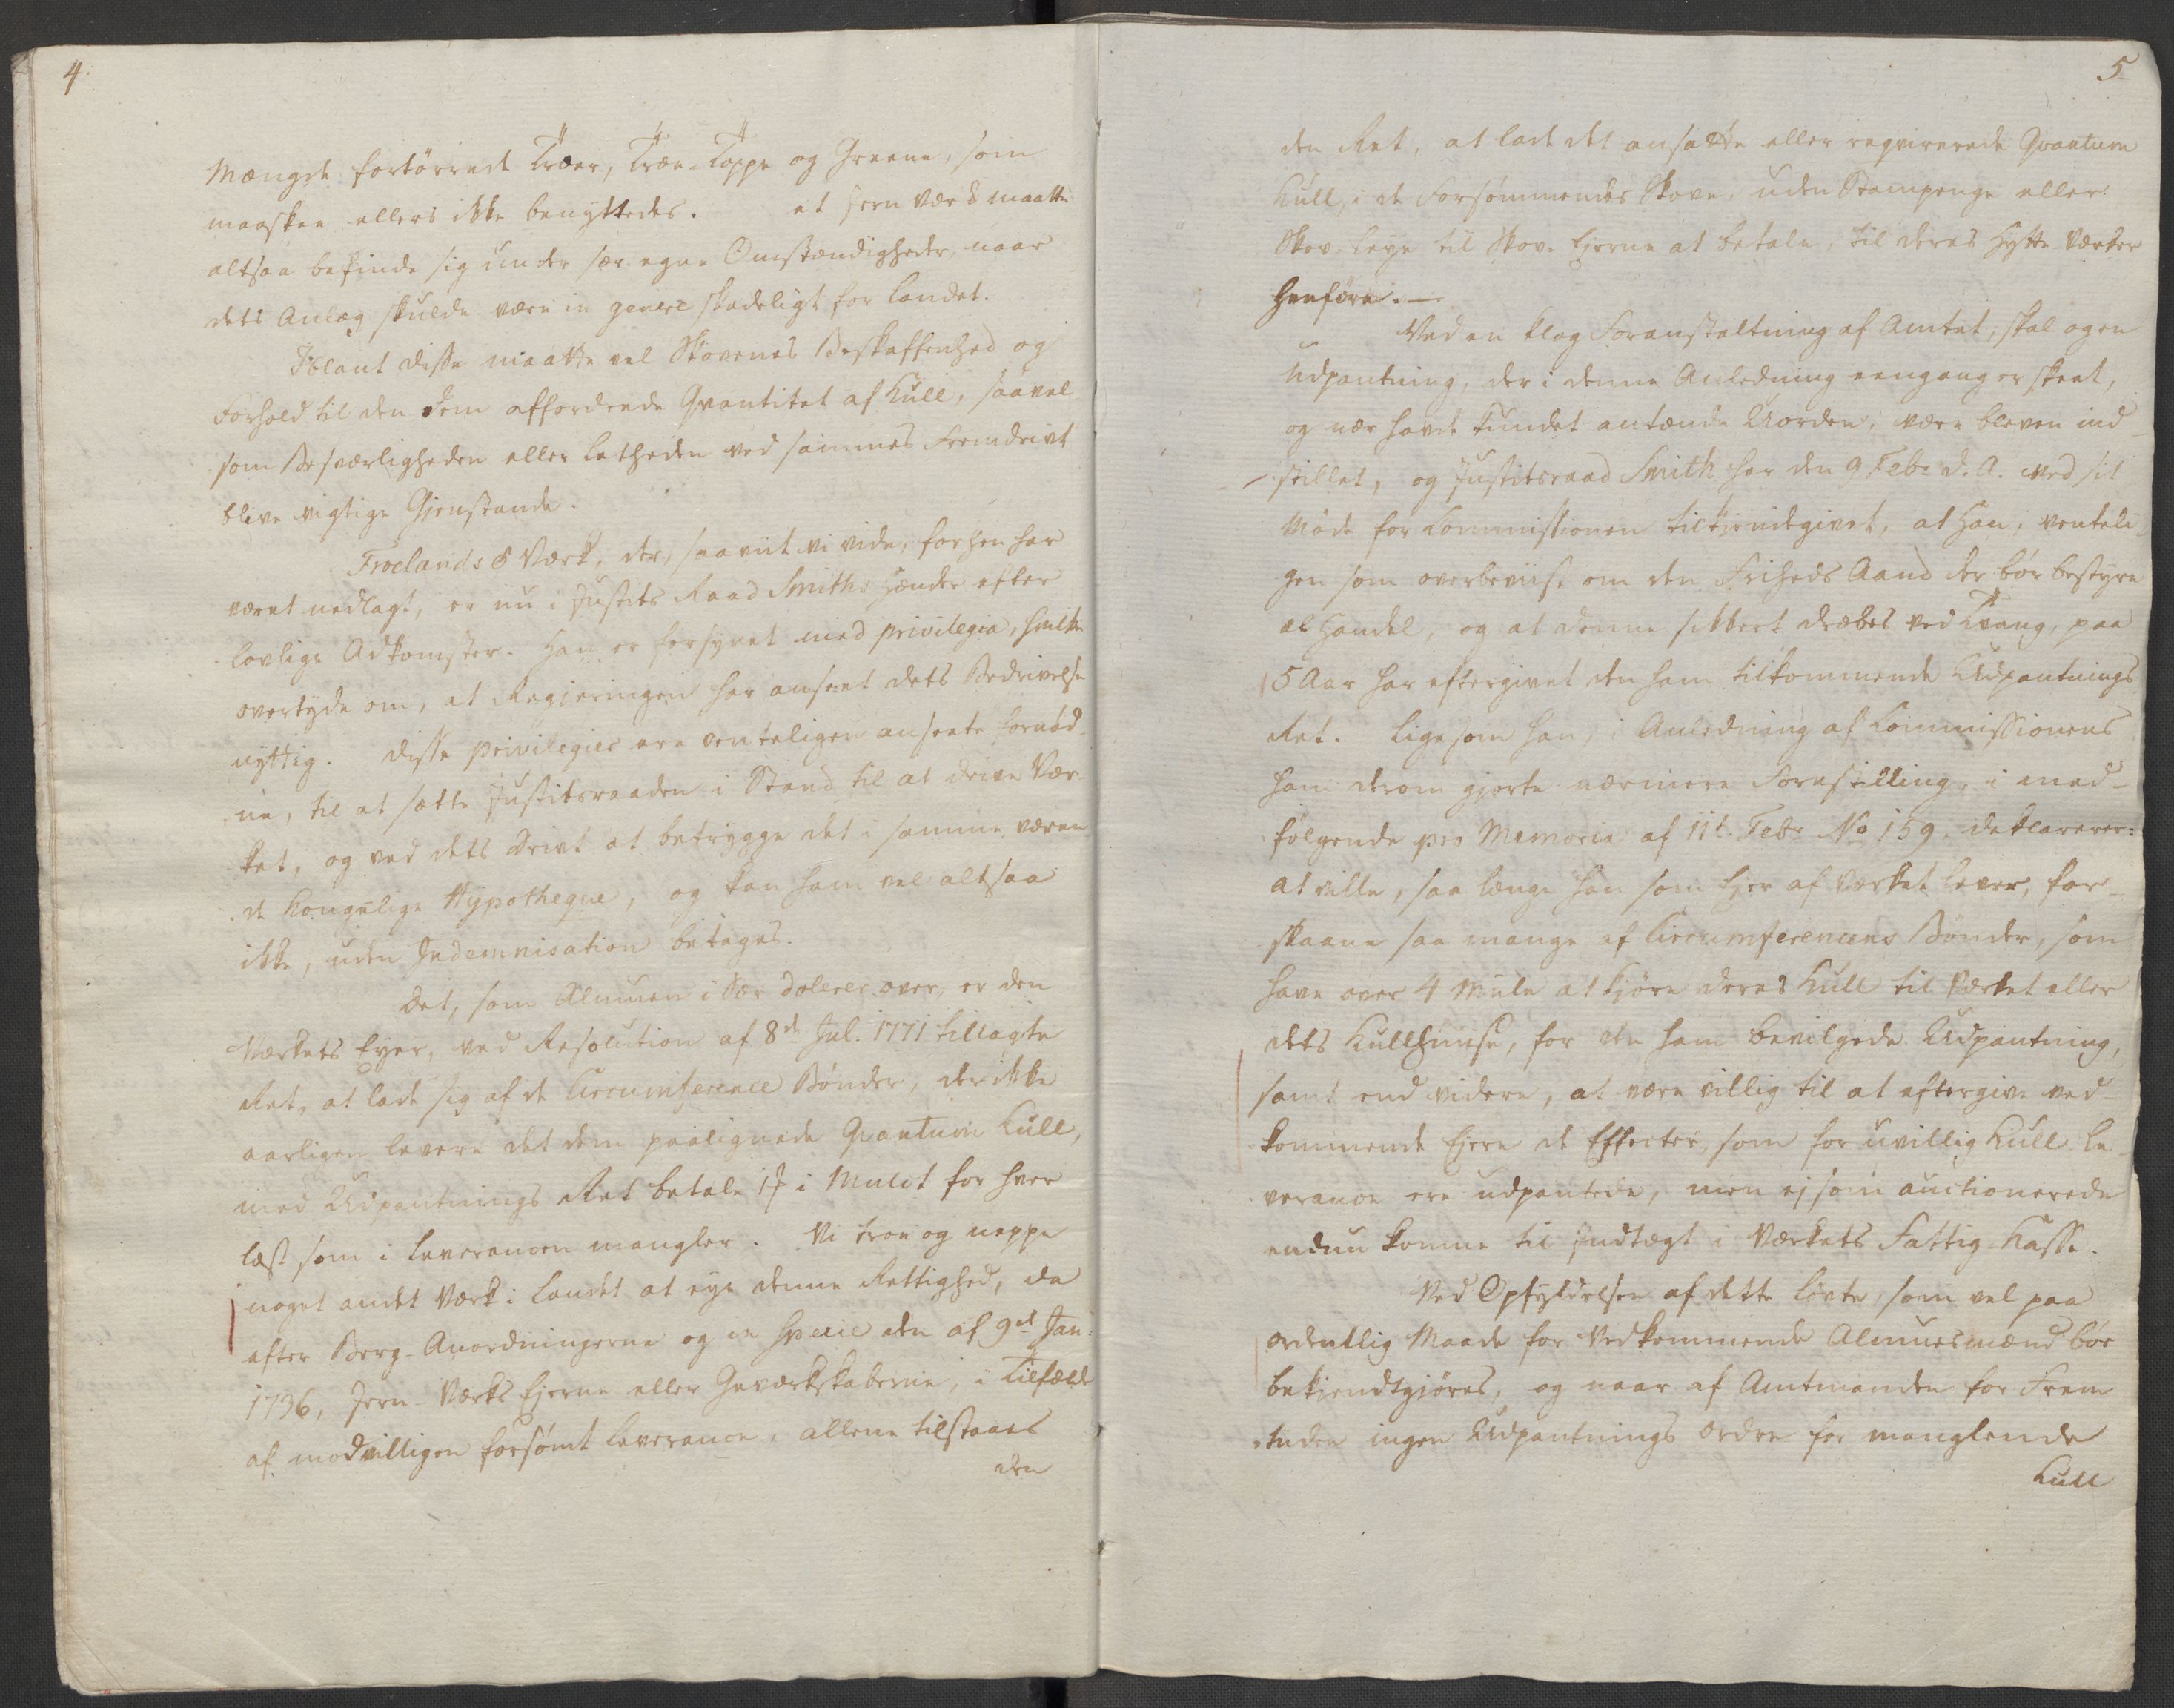 4
Mængde fortörrede Træer, Træe-Toppe og Greene, som
maaskee ellers ikke benyttedes. et Jern Værk maatte
altsaa befinde sig under sær egne Omstændigheder, naar
dets Anlæg skulde være in genere skadeligt for Landet.
Iblant disse maatte vel Skovenes Beskaffenhed og
Forhold til den dem affordrede Qvantitet af Kull, saavel
som Besværligheden eller Letheden ved sammes Fremdrivt
blive vigtige Gjenstande.
Froelands Værk, der, saavit vi vide, forhen har
været nedlagt, er nu i Justits Raad Smiths Hænder efter
lovlige Adkomster. Han er forsynet med privilegia, hvilke
overtyde om, at Regjeringen har anseet dets Bedrivelse
nyttig. disse privilegier ere venteligen anseete fornöd
ne, til at sætte Justitsraaden i Stand til at drive Vær
ket, og ved dets Drivt at betrygge det i samme værende
de kongelige Hypotheque, og kan ham vel altsaa
ikke, uden Indemnisation betages.
Det, som Almuen i sær dolerer over, er den
Værkets Eyer, ved Resolution af 8de Jul. 1771 tillagte
Ret, at lade sig af de Circumference Bönder, der ikke
aarligen levere det dem paalignede Qvantum Kull,
med Udpantnings Ret betale 1 i Mulct for hver
Læst som i Leverancen mangler. Vi troe og neppe
noget andet Værk i Landet at eye denne Rettighed, da
efter Berg-Anordningerne og in specie den af 9de Jan:
1736, Jern-Værks Ejerne eller Gewerkskaberne, i Tilfælde
af modvilligen forsömt Leverance, allene tilstaaes
den
5
den Ret, at lade det ansatte eller reqvirerede Qvantum
Kull, i de Forsömmendes Skove, uden Stampenge eller
Skov-leye til Skov-Ejerne at betale, til deres Hytte-Værker
henföre.—
Ved en klog Foranstaltning af Amtet, skal og en
Udpantning, der i denne Anledning eengang er skeet,
og nær havde kundet antænde Uorden, være bleven ind
stillet, og Justitsraad Smith har den 9 Febr d. A. ved sit
Möde for Commissionen tilkjendegivet, at Han, venteli
gen som overbeviist om den Friheds Aand der bör bestyre
al Handel, og at denne sikkert dræbes ved Tvang, paa
5 Aar har eftergivet den ham tilkommende Udpantnings
Ret. Ligesom han, i Anledning af Commissionens
ham derom gjorte nærmere Forestilling, i med-
fölgende pro Memoria af 11t Febr No 159, deklarerer:
at ville, saa længe han som Ejer af Værket lever, for-
skaane saa mange af Circumferencens Bönder, som
have over 4 Mile at kjöre deres Kull til Værket eller
dets Kullhuuse, for den ham bevilgede Udpantning,
samt end videre, at være villig til at eftergive ved-
kommende Ejere de Effecter, som for uvillig Kull-Le
verance ere udpantede, men ej som auctionerede
endnu komme til Indtægt i Værkets Fattig-Kasse.
Ved Opfyldelsen af dette Lövte, som vel paa
ordentlig Maade for Vedkommende Almuesmænd bör
bekjendtgjöres, og naar af Amtmanden for Frem
tiden ingen Udpantnings Ordre for manglende
Kull